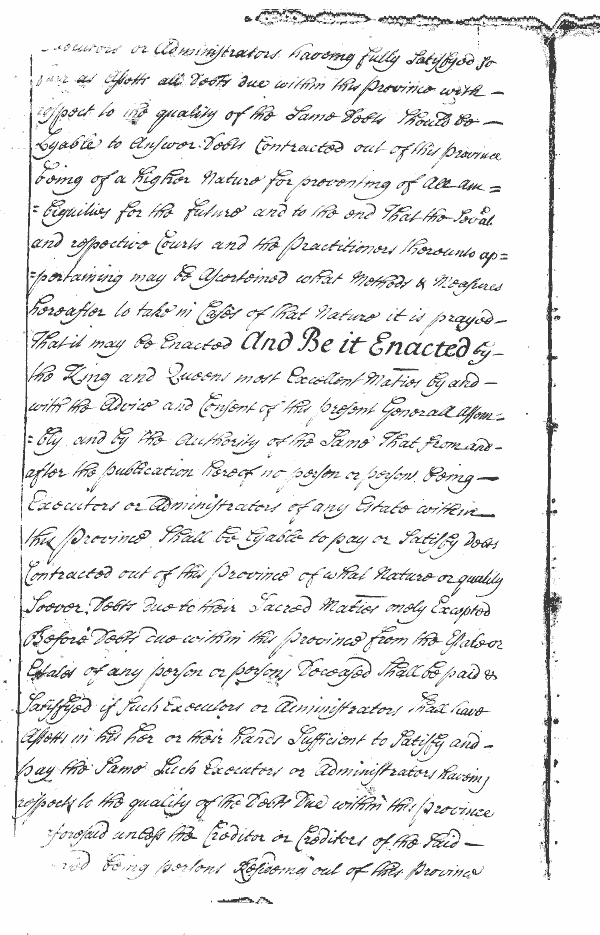 or Administrators haveing fully Satisfyed so
as Assetts all Debts due within this Province with -
respect to the quality of the Same Debts Should be -
Lyable to Answer Debts Contracted out of this Province
being of a higher Nature for preventing of All Am =
= biguities for the future and to the end That the Sevll
and respective Courts and the Practitioners thereunto ap=
=pertaining may be Ascertained what Methods & Measures
hereafter to take in Cases of that Nature it is prayed -
That it may be Enacted And Be it Enacted by -
the King and Queens most Excellent Maties by and -
with the Advice and Consent of this present Generall Assem=
= bly and by the Authority of the Same That from and -
after the publication hereof no person or persons being -
Executors or Administrators of any Estate within -
this Province Shall be Lyable to pay or Satisfy Debts
Contracted out of this Province of what Nature or quality
Soever, Debts due to their Sacred Maties onely Excepted
Before Debts due within this Province from the Estate or
Estates of any person or persons Deceased Shall be paid &
Satisfyed if Such Executors or Administrators Shall have
Assetts in his her or their hands Sufficient to Satisfy and -
pay the Same Such Executors or Administrators having
respects to the quality of the Debts Due within this Province
aforesaid unless the Creditor or Creditors of the Said -
being persons Resideing out of this Province